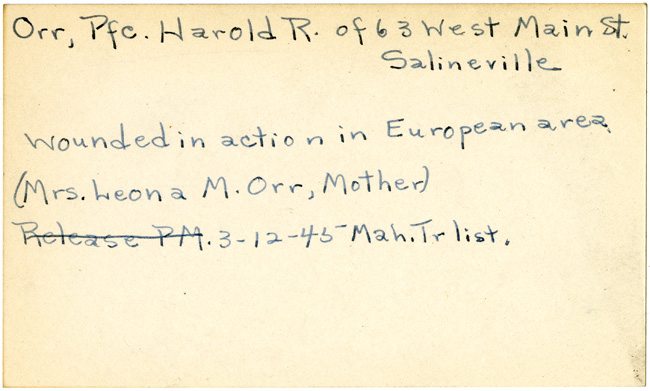 Orr, Pfc. Harold R. of 63 West Main St.
Salineville
Wounded in action in European area.
(Mrs. Leona M. Orr, Mother)
Release PM. 3-12-45 Mah. Tr list.